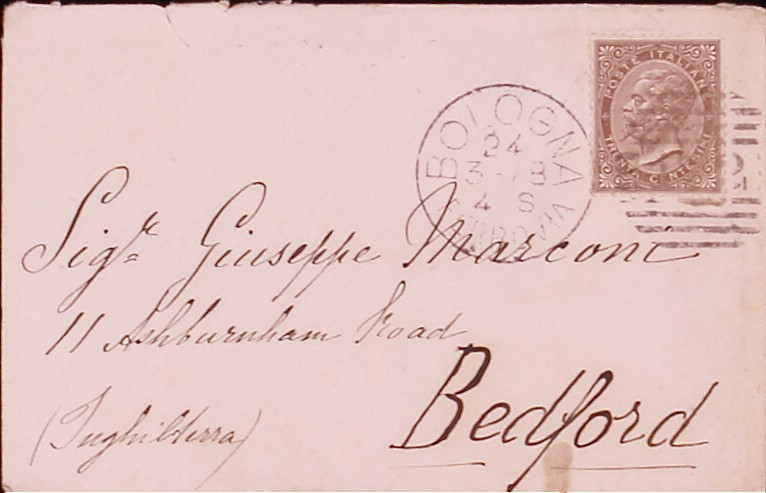 POSTE ITALIANE
TRENTA CENTESIMI
BOLOGNA
24
4 S
FERROVIA
Sig.r Giuseppe Marconi
11 Ashburnham Road
Bedford
(Inghilterra)